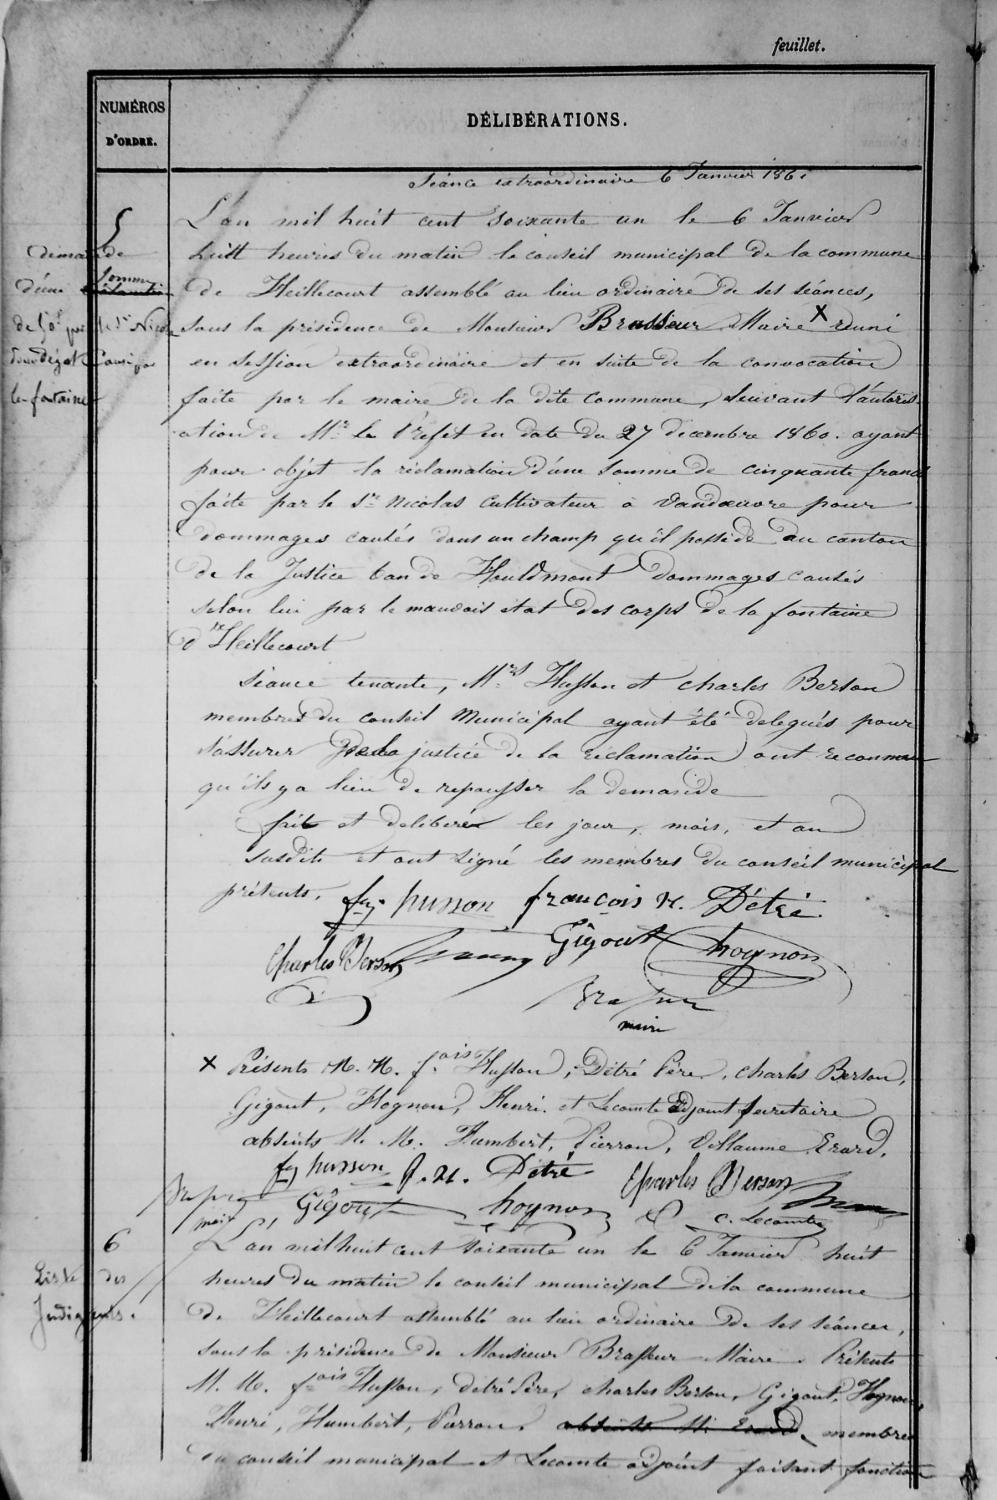 feuillet.
NUMÉROS
D'ORDRE.
DÉLIBÉRATIONS.
Séance extraordinaire 6 Janvier 1861
5
demande
d'une somme
de 50f par le Sr Nicolas
pour dégat causé par
la fontaine
L'an mil huit cent soixante un le 6 Janvier
huit heures du matin le conseil municipal de la commune
de Heillecourt assemblé au lieu ordinaire de ses séances,
sous la présidence de Monsieur Brasseur Maire X réuni
en session extraordinaire et en suite de la convocation
faite par le maire de la dite commune, suivant l'autoris-
ation de Mr le Préfet en date du 27 décembre 1860. ayant
pour objet la réclamation d'une somme de cinquante francs
faite par le Sr Nicolas cultivateur à Vandœuvre pour
dommages causés dans un champ qu'il possède au canton
de la Justice ban de Houdmont dommages causés
selon lui par le mauvais état des corps de la fontaine
d'Heillecourt
Séance tenante, Mrs Husson et charles Berson
membres du conseil Municipal ayant été delegués pour
s'assurer de la justice de la réclamation ont reconnu
qu'ils y a lieu de repousser la demande
fait et deliberé les jour, mois, et an
susdits et ont signé les membres du conseil municipal
présents.
fs husson françois N. Détré
Charles Berson Gigout hognon
Brasseur
maire
X Présents M. M. fois Husson, Détré Père, charles Berson,
Gigout, Hognon, Henri. et Lecomte adjoint secretaire
absents M. M. Humbert, Pierron, Villaume Erard.
fs husson f. N. Détré Charles Berson
Brasseur Gigout hognon c. Lecomte
maire
6
Liste des
Indigents.
L'an mil huit cent soixante un le 6 Janvier huit
heures du matin le conseil municipal de la commune
de Heillecourt assemblé au lieu ordinaire de ses séances,
sous la présidence de Monsieur Brasseur Maire. Présents
M. M. fois Husson, detré Père, charles Berson, Gigout, Hognon,
Henri, Humbert, Pierron, absents M. Erard, membres
du conseil municipal et Lecomte adjoint faisant fonction